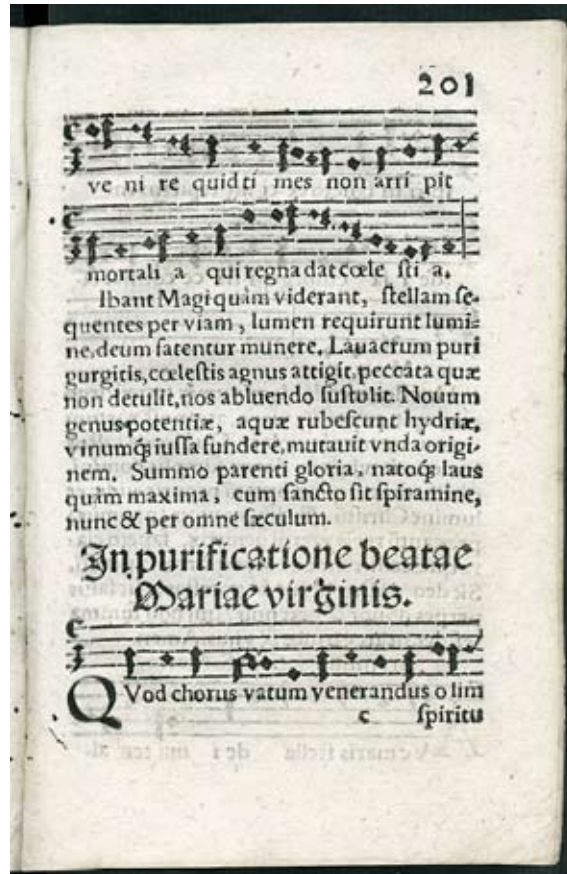 201
ve ni re quid ti mes non arri pit
mortali a qui regna dat cœle sti a.
Ibant Magi quàm viderant, ſtellam ſe-
quentes per viam, lumen requirunt lumi-
ne, deum fatentur munere. Lauacrum puri
gurgitis, cœleſtis agnus attigit, peccata quæ
non detulit, nos abluendo ſuſtulit. Nouum
genus potentiæ, aquæ rubeſcunt hydriæ,
vinumq́ꝫ iuſſa fundere, mutauit vnda origi-
nem. Summo parenti gloria, natoq́ꝫ laus
quàm maxima, cum ſancto ſit ſpiramine,
nunc & per omne ſæculum.
In purificatione beatae
Mariae virginis.
QVod chorus vatum venerandus o lim
c ſpiritu